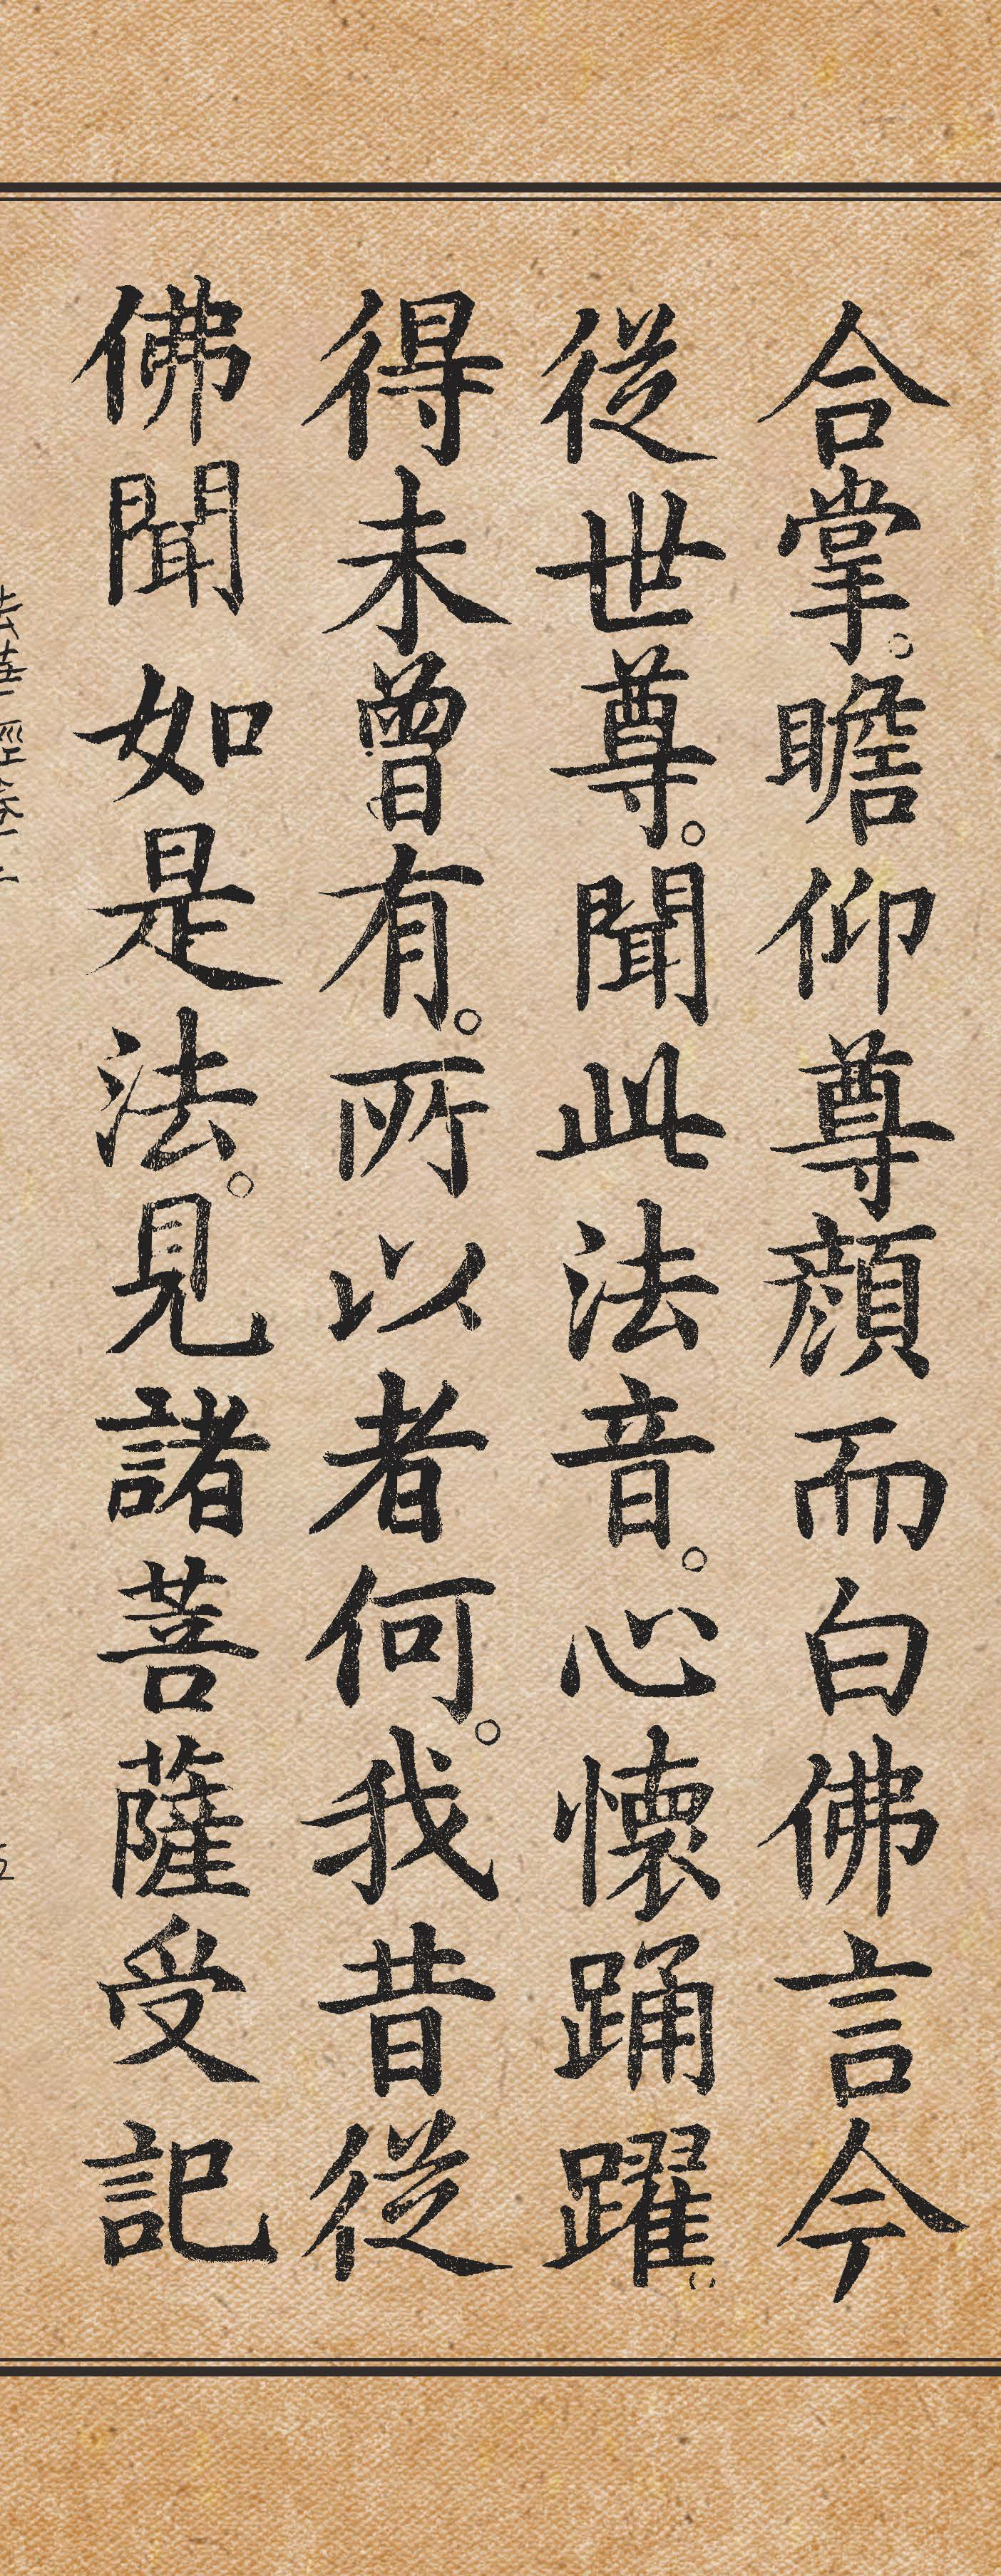 合掌。瞻仰尊顔而白佛言今
從世尊。聞此法音。心懷踊躍。
得未曾有。所以者何。我昔從
佛聞如是法。見諸菩薩受記